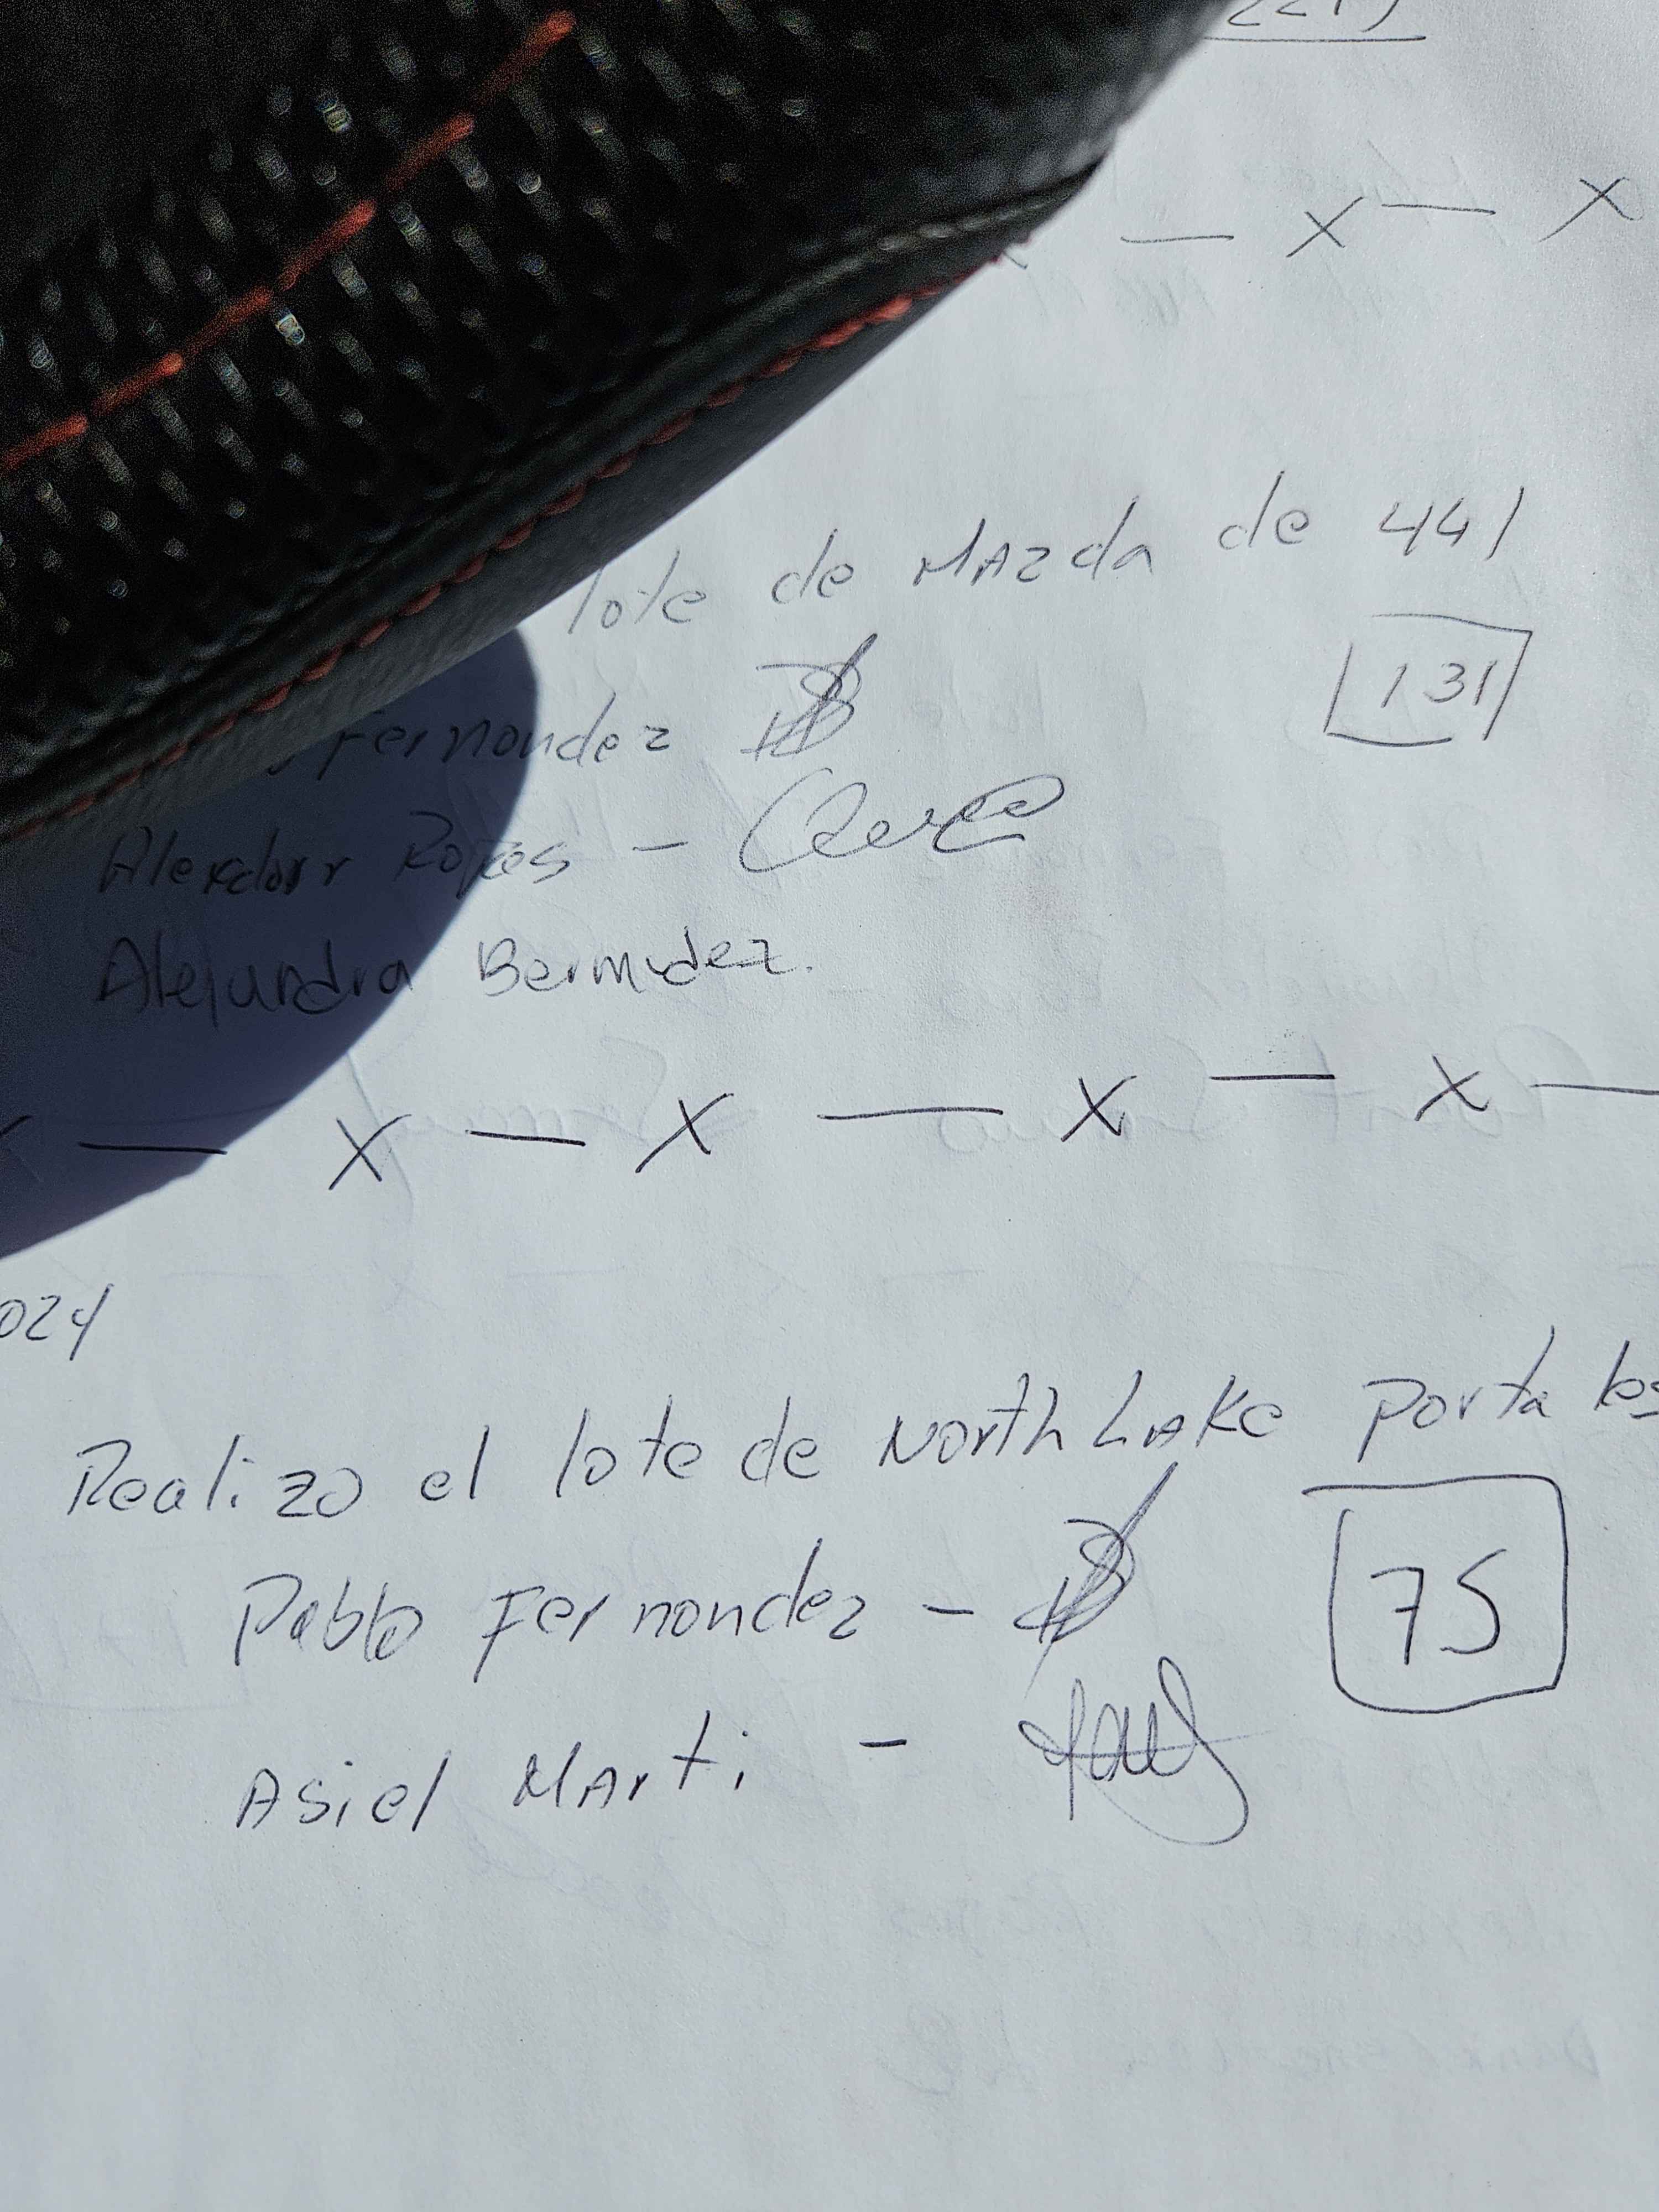 — X — X
lote de MAzda de 441
131
Fernondez
Rojas —
Alejandra Bermudez.
X — X — X — X — X —
024
Realizo el lote de North LAKe porta los
75
Pablo Fernondez —
Asiel MArti —